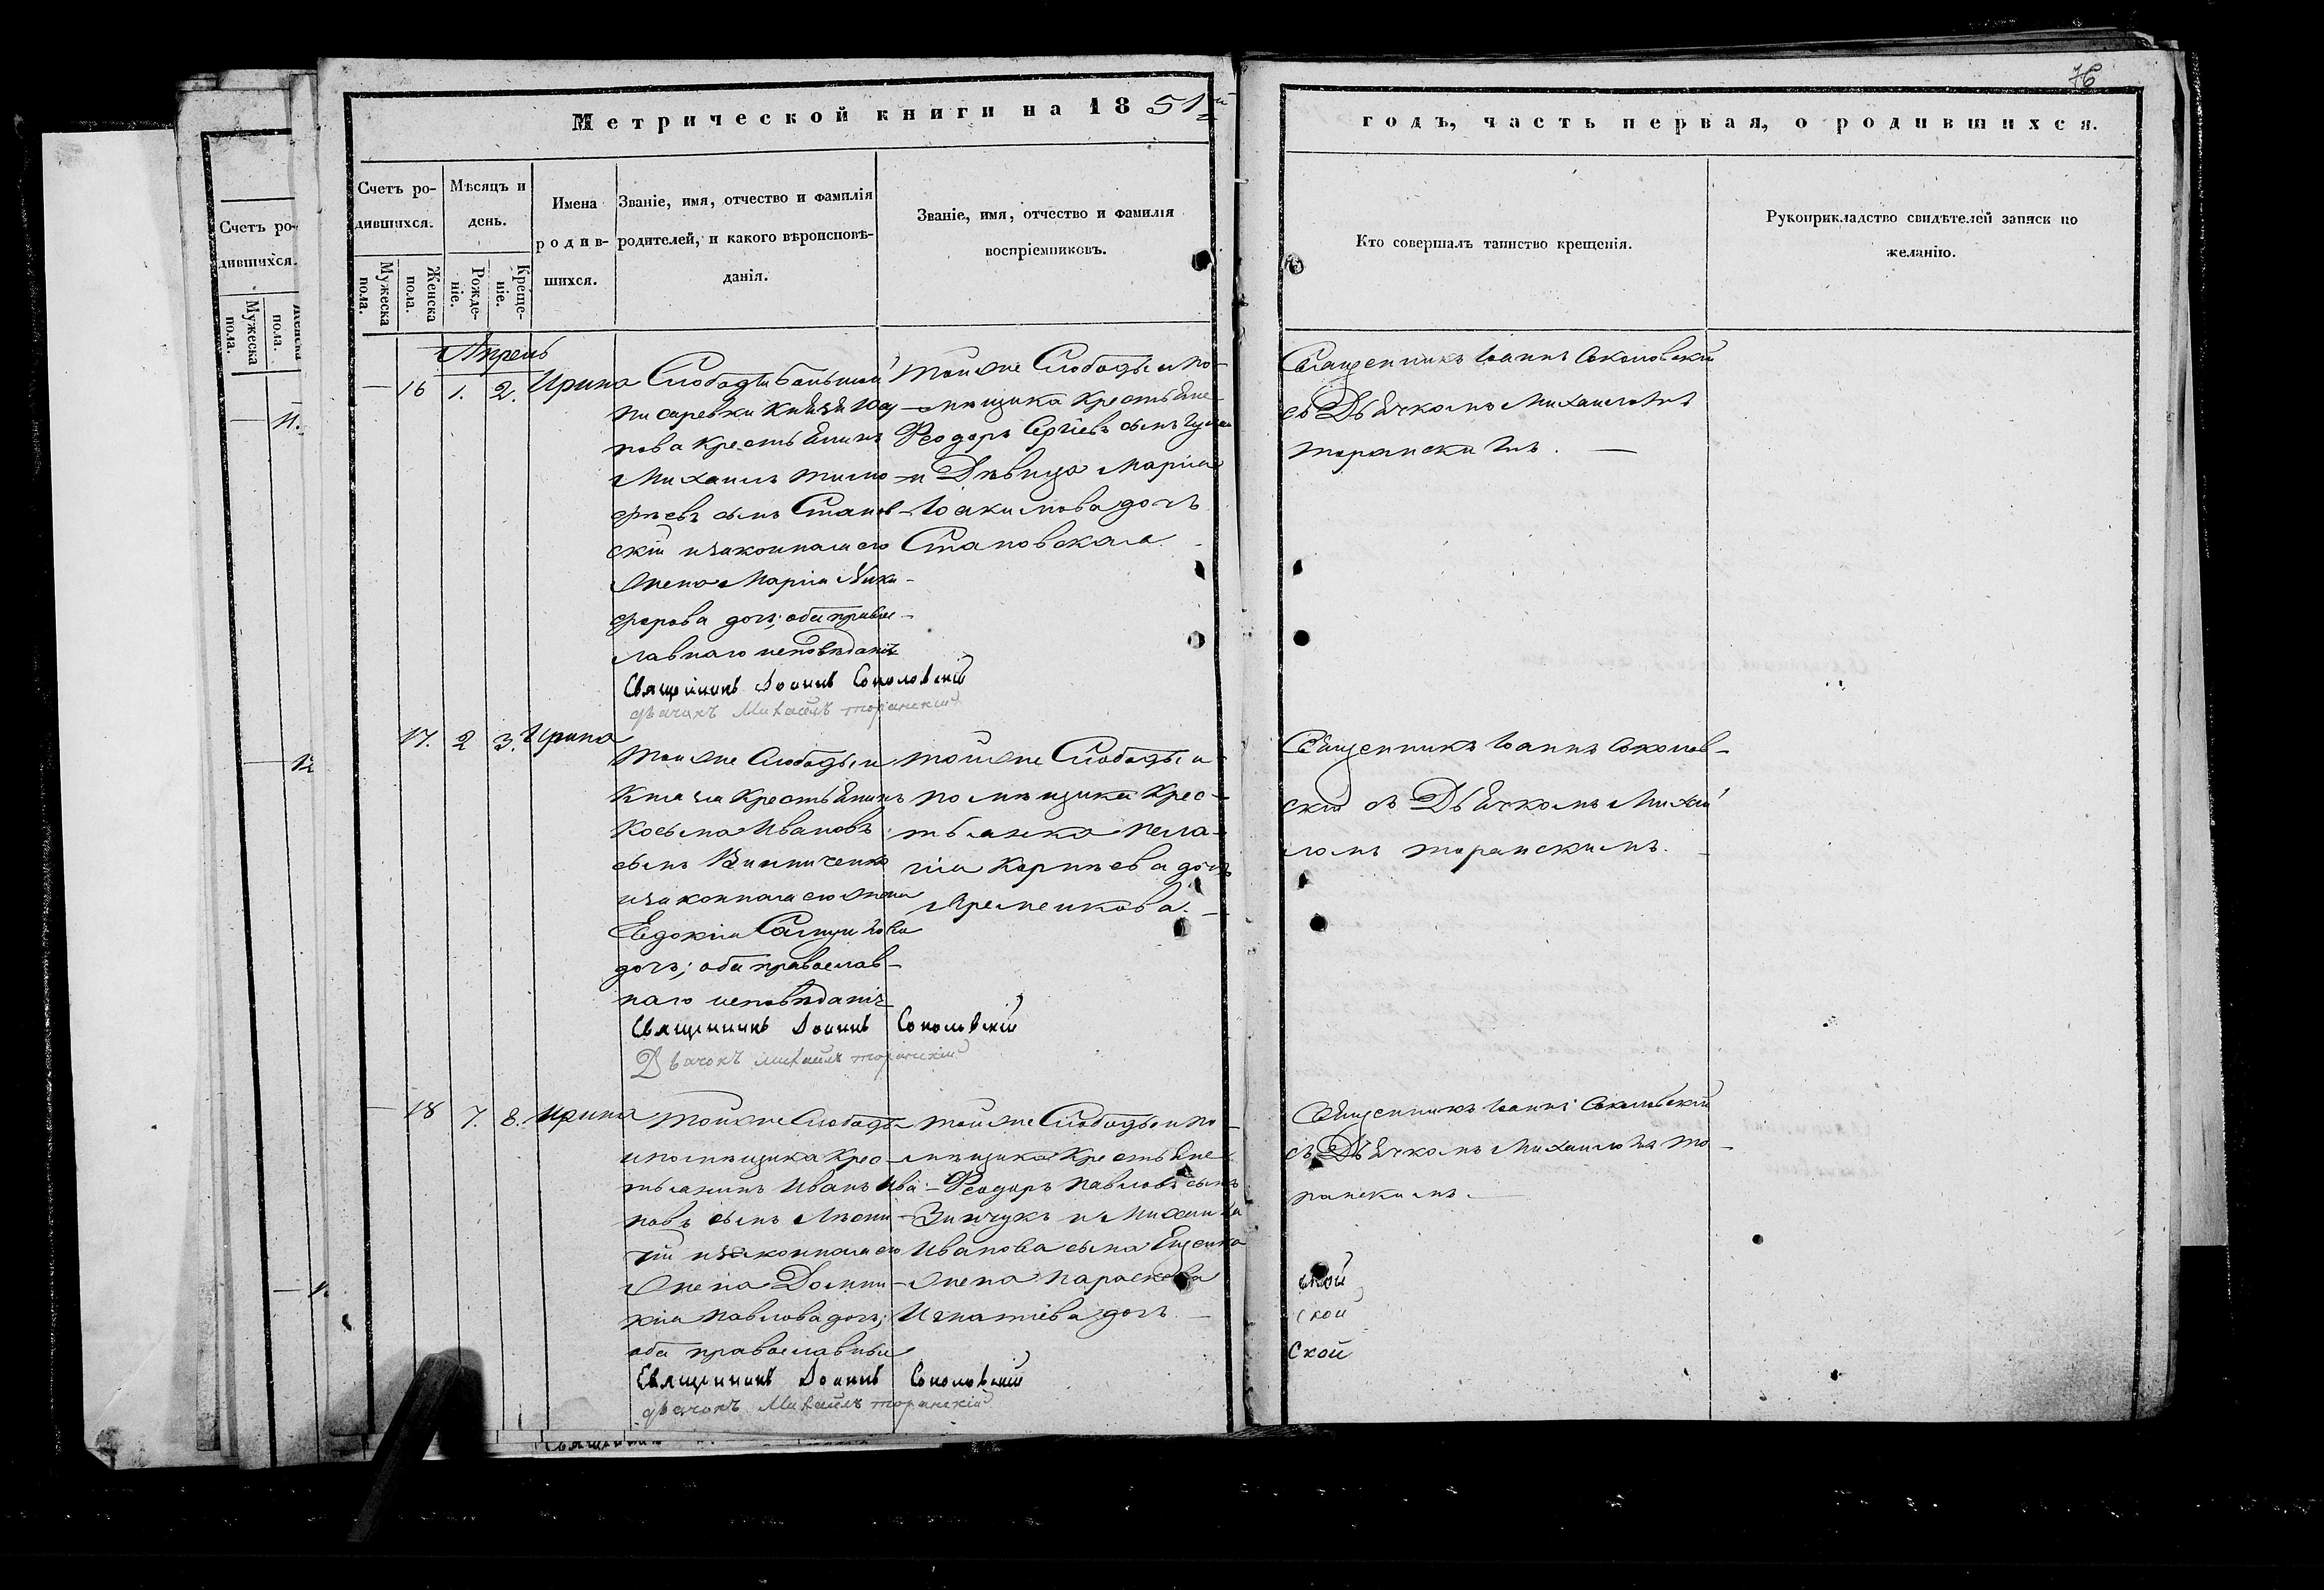 76
Метрической книги на 1851й
годъ, часть первая, о родившихся.
Счетъ ро-
дившихся.
Мужеска
пола.
Женска
пола.
11.
12
Счетъ ро-
дившихся.
Мужеска
пола.
Женска
пола.
Мѣсяцъ и
день.
Рожде-
ніе.
Креще-
ніе.
Имена
родив-
шихся.
Званіе, имя, отчество и фамилія
родителей, и какого вѣроисповѣ-
данія.
Званіе, имя, отчество и фамилія
воспріемниковъ.
Кто совершалъ таинство крещенія.
Рукоприкладство свидѣтелей записи по
желанію.
Апрель
16 1. 2. Ирина
Слободы Большой
Писаревки Князя
пова крестьянинъ
Михаилъ Тимо-
фѣевъ сынъ Станов-
скій и законная его
жена Марія Ники-
форова дочь; оба право-
славнаго исповѣданія
Священникъ Іоаннъ Соколовскій
дьячокъ Михаилъ Торанскій
той же Слободы и по-
мѣщика крестьяне
Ѳеодоръ Сергіевъ сынъ
и Дѣвица Марія
Іоакимова дочь
Становская.
Священникъ Іоаннъ Соколовскій
съ Дьячкомъ Михаиломъ
Торанскимъ.
17. 2 3. Ирина
Той же Слободы и
Князя Крестьянинъ
Косьма Ивановъ
сынъ Винниченко
и законная его жена
Евдокія
дочь; оба православ-
наго исповѣданія
Священникъ Іоаннъ Соколовскій
Дьячокъ Михаилъ Торанскій
той же Слободы и
помѣщика Крес-
тьянка Пела-
гія Корнѣева дочь
Яременкова.
Священникъ Іоаннъ Соколов-
скій съ Дьячкомъ Михаи
ломъ Торанскимъ.
18 7. 8. Ирина
Той же Слободы
и помѣщика Крес-
тьянинъ Иванъ Ива-
новъ сынъ Лѣсни-
чій и законная его
жена Домни-
кія Павлова дочь;
оба православныи
Священникъ Іоаннъ Соколовскій
дьячокъ Михаилъ Торанскій
той же Слободы и по-
мѣщика Крестьяне
Ѳеодоръ Павловъ сынъ
Зинчукъ и Михаила
Иванова сына Ященка
жена Параскева
Игнатіева дочь.
Священникъ Іоаннъ Соколовскій
съ Дьячкомъ Михаиломъ То-
ранскимъ.
ской
ской
Ской